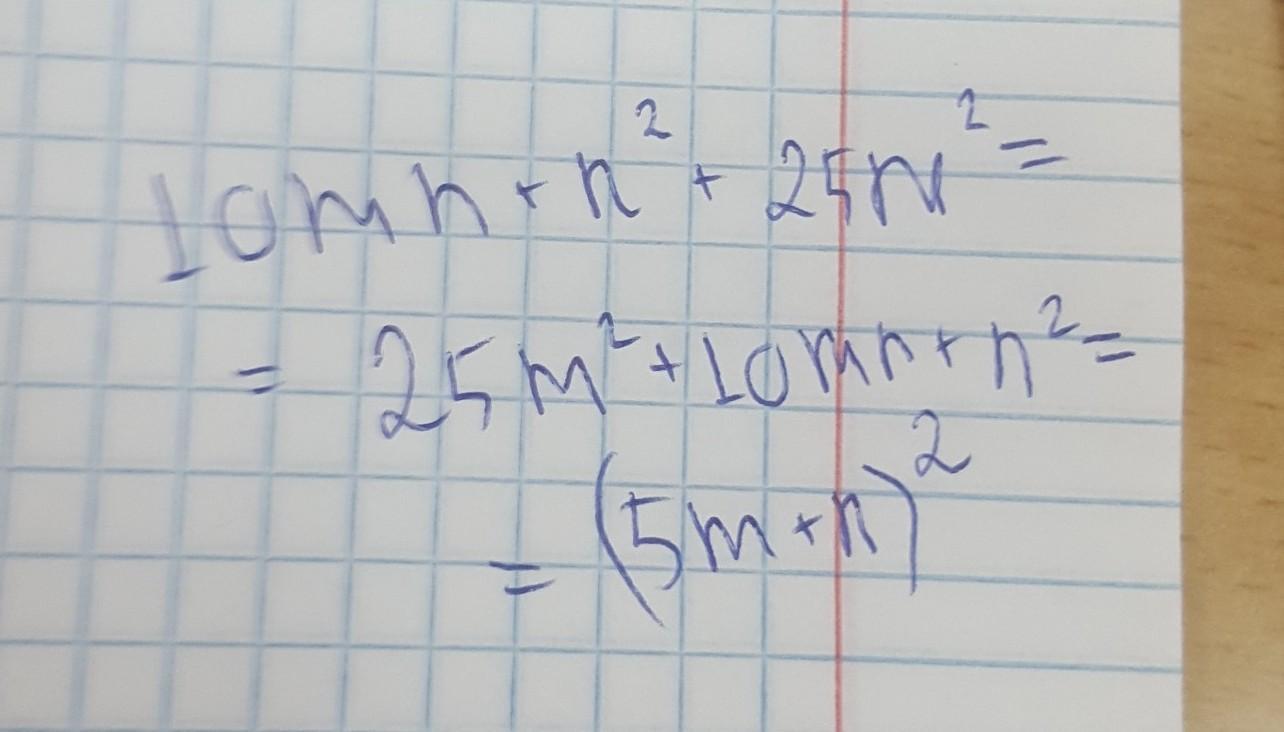 10mn + n² + 25m² =
= 25m² + 10mn + n² =
= (5m + n)²